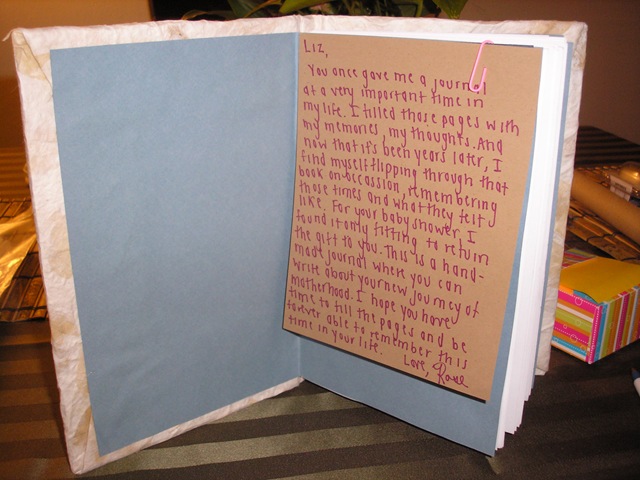 Liz,
You once gave me a journal
at a very important time in
my life. I filled those pages with
my memories, my thoughts. And
now that it's been years later, I
find myself flipping through that
book on occassion, remembering
those times and what they felt
like. For your baby shower, I
found it only fitting to return
the gift to you. This is a hand-
made journal where you can
write about your new journey of
motherhood. I hope you have
time to fill the pages and be
forever able to remember this
time in your life.
Love,